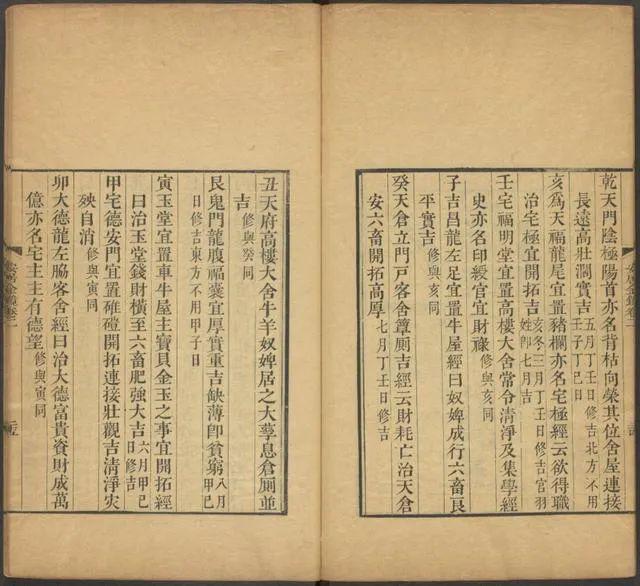 乾天門陰極陽首亦名背枯向榮其位舍屋連接
長遠高壯濶實吉五月丁壬日修吉北方不用壬子丁巳日
亥為天福龍尾宜置豬欄亦名宅極經云欲得職
治宅極宜開拓吉亥冬三月丁壬日修吉宮羽姓卽七月吉
壬宅福明堂宜置高樓大舍常令清淨及集學經
史亦名印綬宮宜財祿修與亥同
子吉昌龍左足宜置牛屋經曰奴婢成行六畜良
平實吉修與亥同
癸天倉立門戸客舍簟厠吉經云財耗亡治天倉
安六畜開拓高厚七月丁壬日修吉
丑天府高樓大舍牛羊奴婢居之大孳息倉厠並
吉修與癸同
艮鬼門龍腹福囊宜厚實重吉缺薄卽貧窮八月甲巳
日修吉東方不用甲子日
寅玉堂宜置車牛屋主寶貝金玉之事宜開拓經
曰治玉堂錢財橫至六畜肥強大吉六月甲己日修吉
甲宅德安門宜置碓磑開拓連接壯觀吉清淨灾
殃自消修與寅同
卯大德龍左脇客舍經曰治大德富貴資財成萬
億亦名宅主主有德望修與寅同